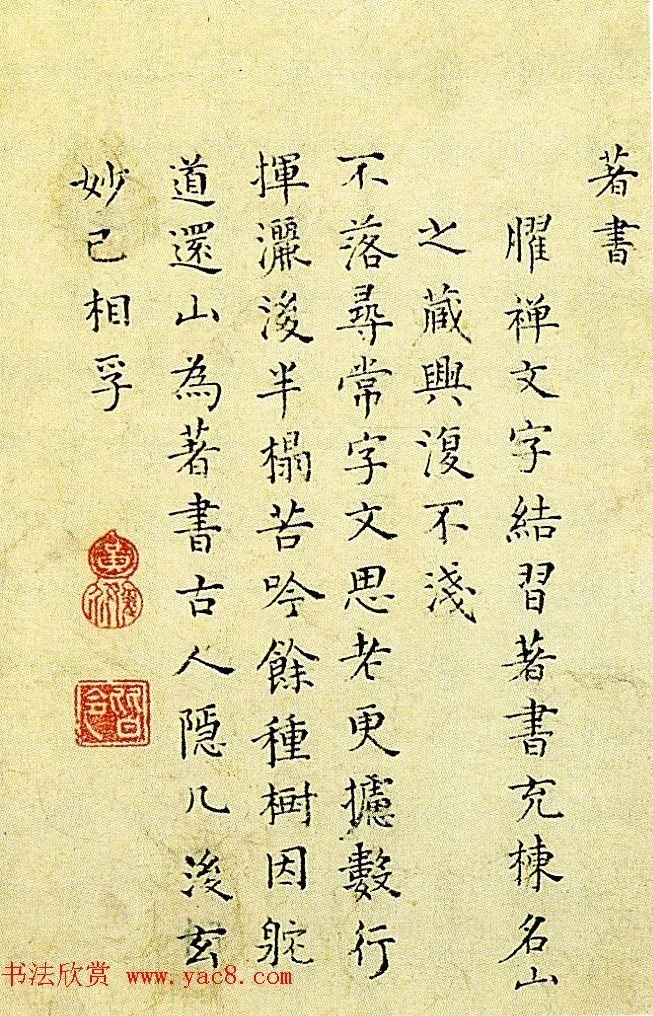 著書
臞禅文字結習著書充棟名山
之藏興復不淺
不落尋常字文思老更攄數行
揮灑後半榻苦吟餘種樹因駝
道還山為著書古人隱几後玄
妙已相孚
书法欣赏 www.yac8.com